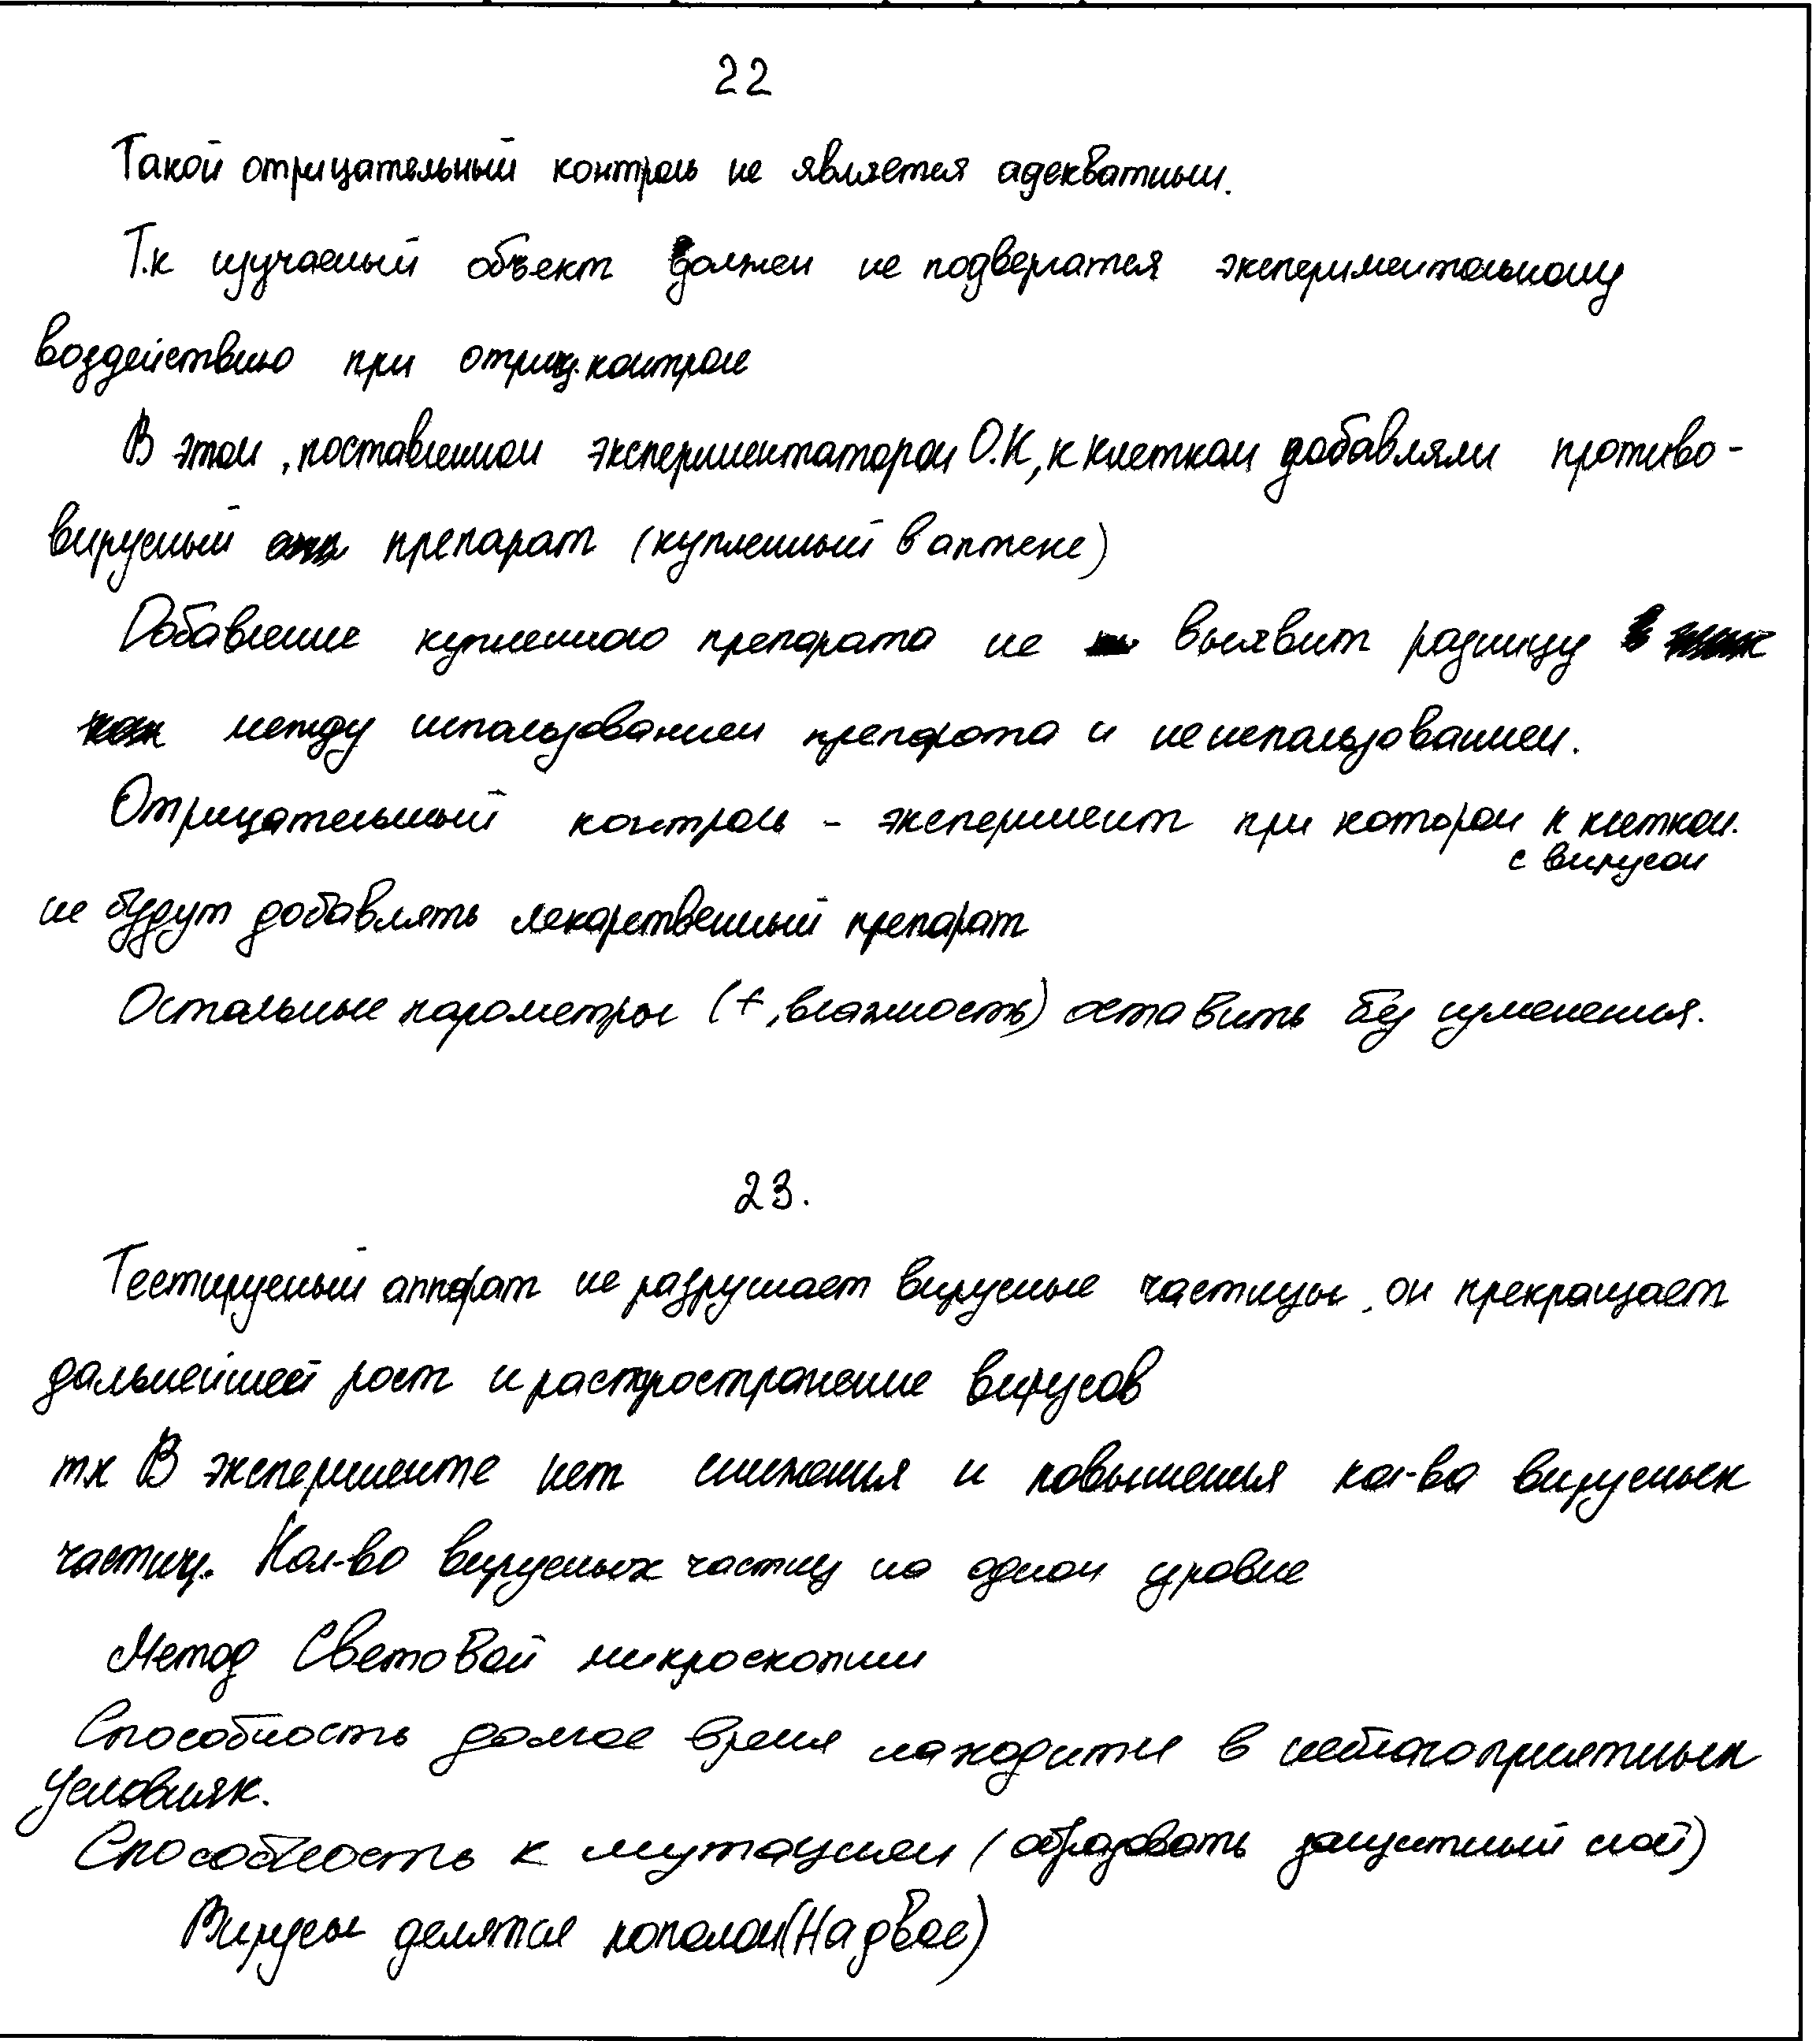 22
Такой отрицательный контроль не является адекватным.
Т.к изучаемый объект должен не подвергатся экспериментальному
воздействию при отриц. контроле
В этом, поставленном экспериментатором О.К, к клеткам добавляли противо-
вирусный препарат (купленный в аптеке)
Добавление купленного препарата не выявит разницу
между использованием препарата и неиспользованием.
Отрицательный контроль - эксперимент при котором к клеткам
с вирусом
не будут добавлять лекарственный препарат
Остальные параметры (t, влажность) оставить без изменения.
23.
Тестируемый аппарат не разрушает вирусные частицы, он прекращает
дальнейшей рост и распространение вирусов
тк В эксперименте нет снижения и повышения кол-ва вирусных
частиц. Кол-во вирусных частиц на одном уровне
Метод Световой микроскопии
Способность долгое время находится в неблагоприятных
условиях.
Способность к мутациям (образовать защитный слой)
Вирусы делятся пополам (На двое)